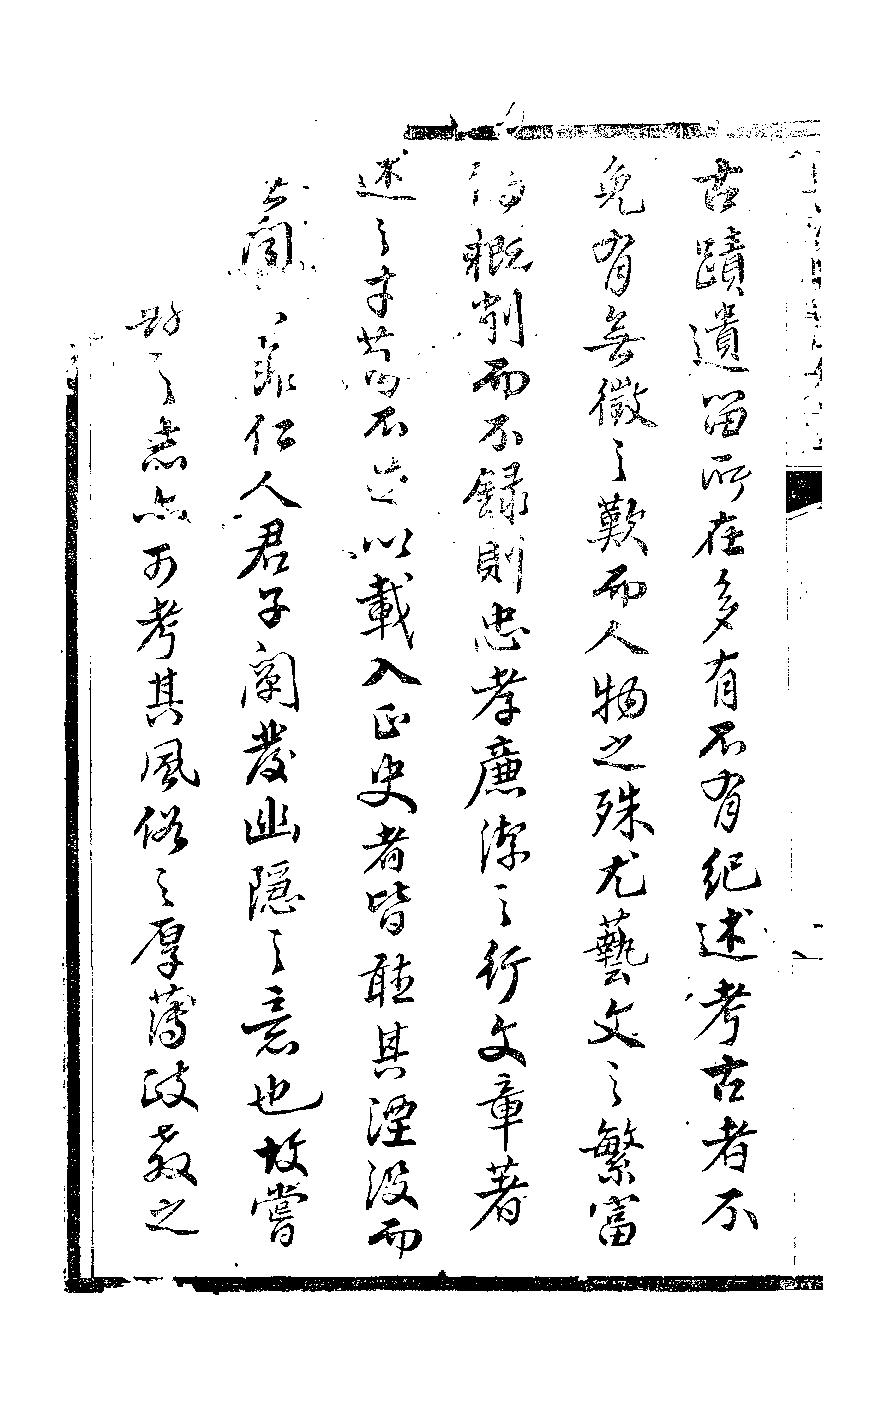 古蹟遺留所在多有不有紀述考古者不
免有無徵之歎而人物之殊尤藝文之繁富
概削而不録則忠孝廉潔之行文章著
述之才苟不足以載入正史者皆聽其湮没而
仁人君子闡發幽隱之意也故嘗
之志亦可考其風俗之厚薄政教之